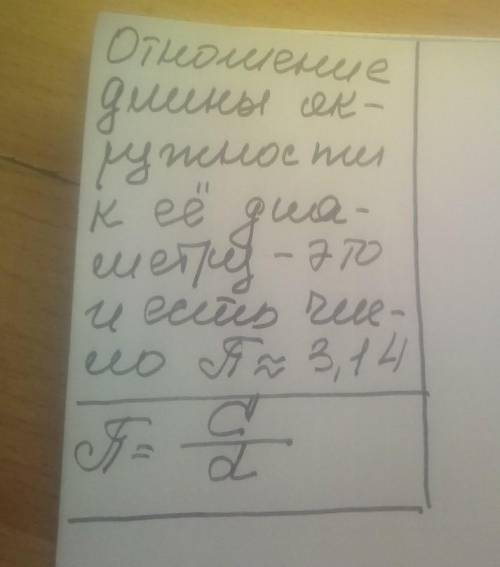 Отношение
длины ок-
ружности
к её диа-
метру - это
и есть чис-
ло П ≈ 3,14
П = C/d